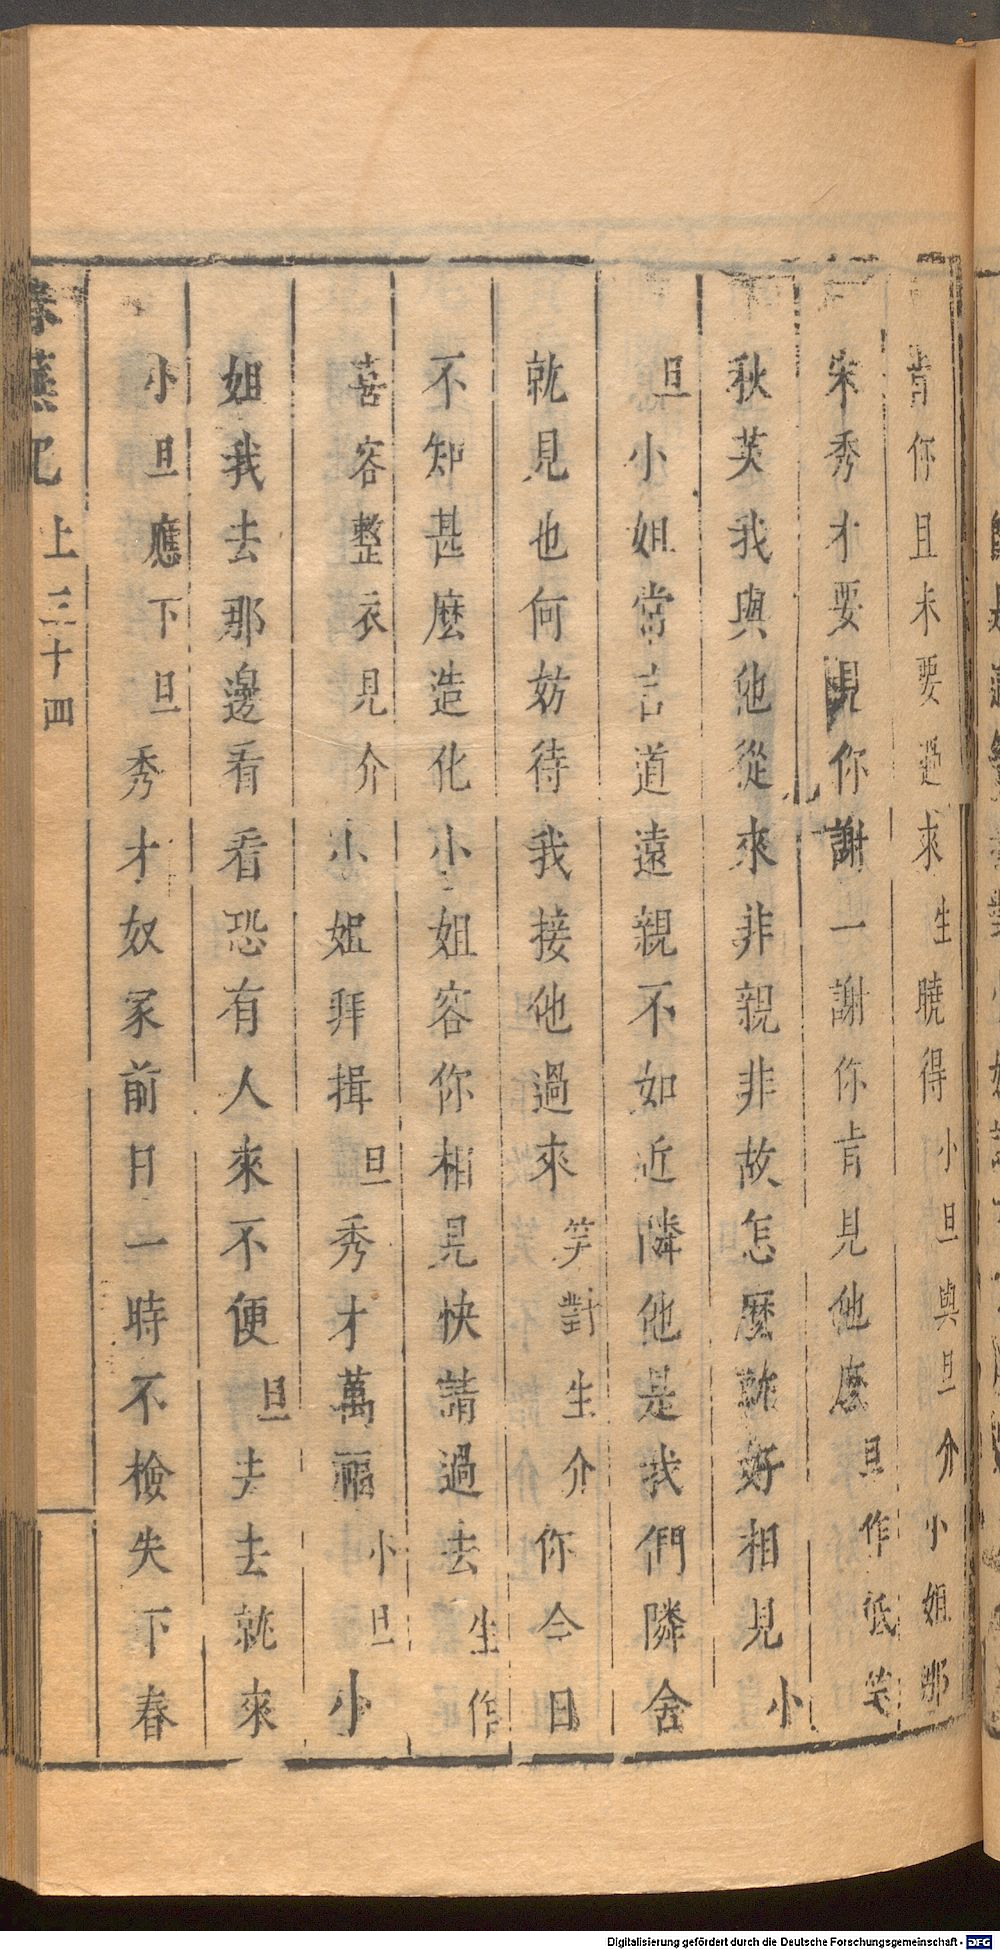 肯你且未要過求生曉得小旦與旦介小姐那
宋秀才要見你謝一謝你肯見他麽旦作低笑
秋英我與他從來非親非故怎麽就好相見小
旦小姐常言道遠親不如近隣他是我們隣舍
就見也何妨待我接他過來笑對生介你今日
不知甚麽造化小姐容你相見快請過去生作
喜容整衣見介小姐拜揖旦秀才萬福小旦小
姐我去那邊看看恐有人來不便旦去去就來
小旦應下旦秀才奴家前日一時不檢失下春
春蕪記 上 三十四
Digitalisierung gefördert durch die Deutsche Forschungsgemeinschaft - DFG